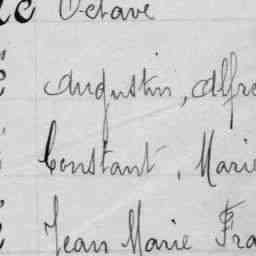 Octave
Augustin, Alfre
Constant, Marie
Jean Marie Fra